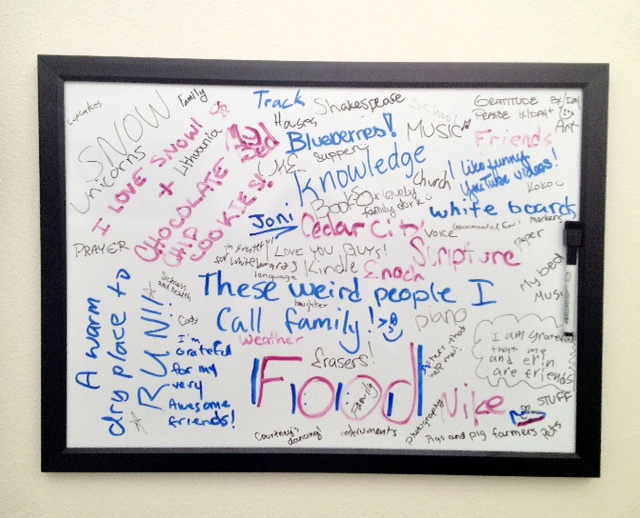 Cupcakes
SNOW
Family
Unicorns
I LOVE SNOW!
+
CHOCOLATE
CHIP
COOKIES!
Lithuania
My
Bed
Track
Shakespeare
School
Houses
Blueberries!
MUSIC
GRATITUDE
PRAISE
Art
Friends
Supper
Knowledge
I like funny
YouTube videos!
Kokoc
Church
Books
family
white boards
Markers
Joni
Cedar City
Voice
Paper
PRAYER
I'm grateful
for whiteboards
I LOVE YOU GUYS!
Scripture
language
Kindle
Enoch
My bed
Music
A warm
dry place to
RUN!!
Sickness
and health
These weird people I
Call family!
laughter
Cody
piano
Weather
I'm
Grateful
for my
very
Awesome
friends!
Erasers!
Food
Family
I am grateful
that me
and erin
are friends
STUFF
Nike
photography
Courtney's
dancing!
instruments
Pigs and pig farmers
Pets